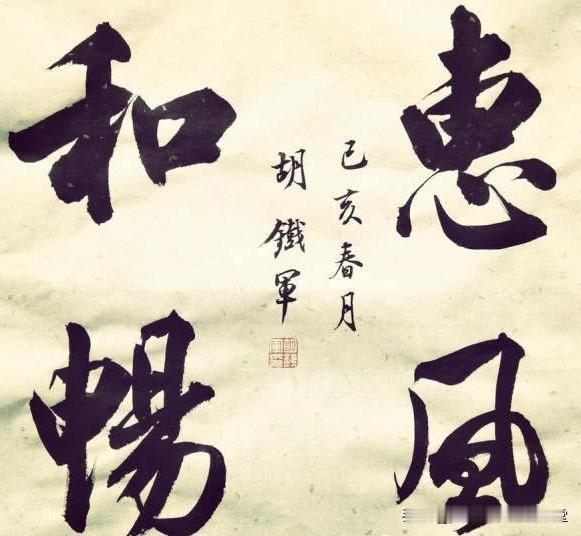 惠風
和暢
己亥春月
胡鐵軍